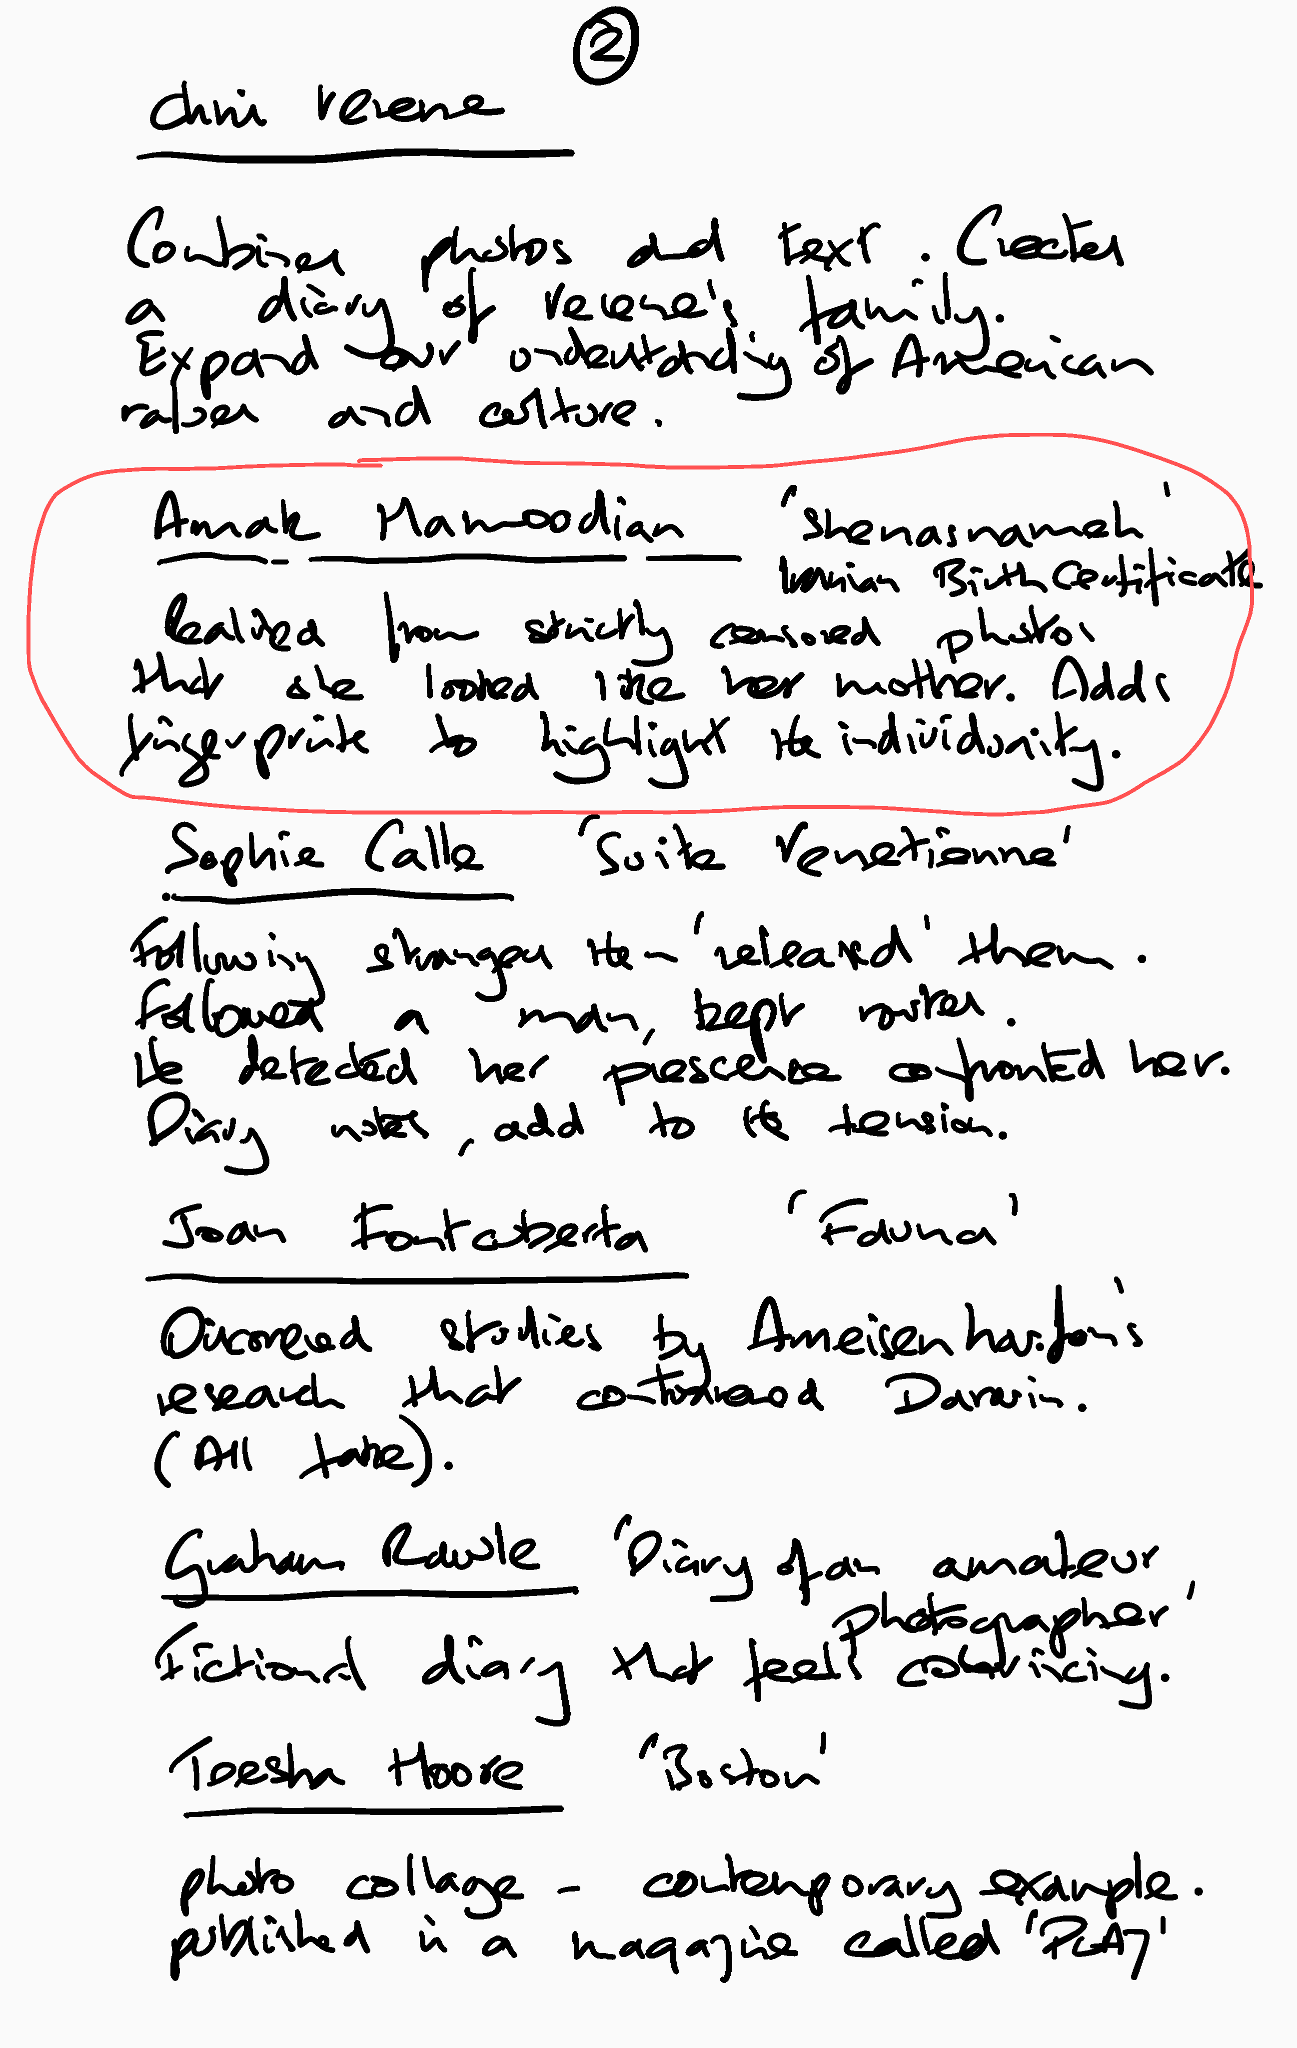 ②
Chris Verene
Combines photos and text. Creates
a diary of Verene's family.
Expand our understanding of American
values and culture.
Amak Mamoodian 'Shenasnameh'
Iranian Birth Certificate
Realised from strictly censored photos
that she looked like her mother. Adds
fingerprints to highlight the individuality.
Sophie Calle 'Suite Venetienne'
Following strangers then 'released' them.
Followed a man, kept routes.
He detected her prescence confronted her.
Diary notes, add to the tension.
Joan Fontcuberta 'Fauna'
Discovered studies by
research that Darwin.
(All fake).
Graham Rawle 'Diary of an amateur
photographer'
Fictional diary that feels convincing.
Teesha Moore 'Boston'
photo collage - contemporary example.
published in a magazine called 'PLAY'